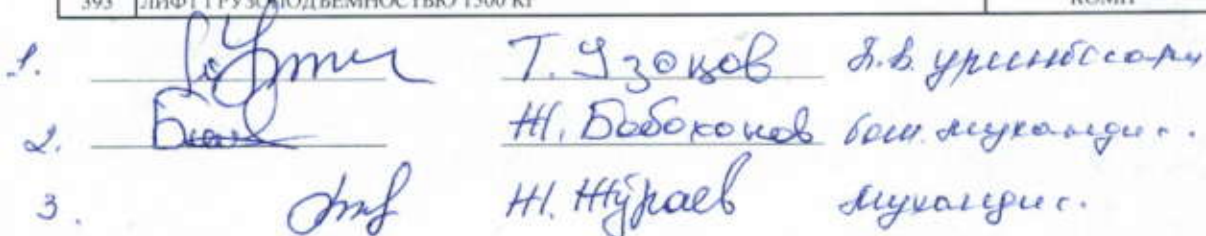 393 ЛИФТ ГРУЗОПОДЪЕМНОСТЬЮ 1500 КГ КОМП
1. Т. Узоқов Б.В. уринбосари
2. Ж. Бобохонов Бош. муҳандис.
3. Ж. Жўраев муҳандис.